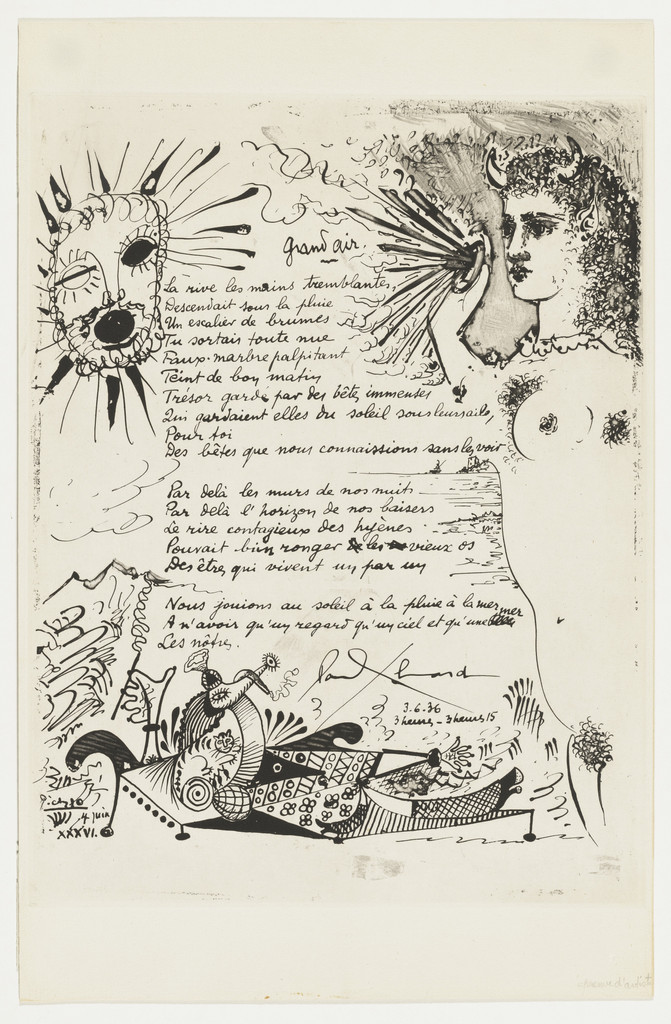 Grand air.
La rive les mains tremblantes,
Descendait sous la pluie
Un escalier de brumes
Tu sortais toute nue
Faux marbre palpitant
Teint de bon matin
Trésor gardé par des bêtes immenses
Qui gardaient elles du soleil sous leurs ailes,
Pour toi
Des bêtes que nous connaissions sans les voir
Par delà les murs de nos nuits
Par delà l'horizon de nos baisers
Le rire contagieux des hyènes
Pouvait bien ronger les vieux os
Des êtres qui vivent un par un
Nous jouions au soleil à la pluie à la mer
A n'avoir qu'un regard qu'un ciel et qu'une mer
Les nôtres.
Paul Eluard
3.6.36
3 heures – 3 heures 15
Picasso
4 juin
XXXVI.
épreuve d'artiste